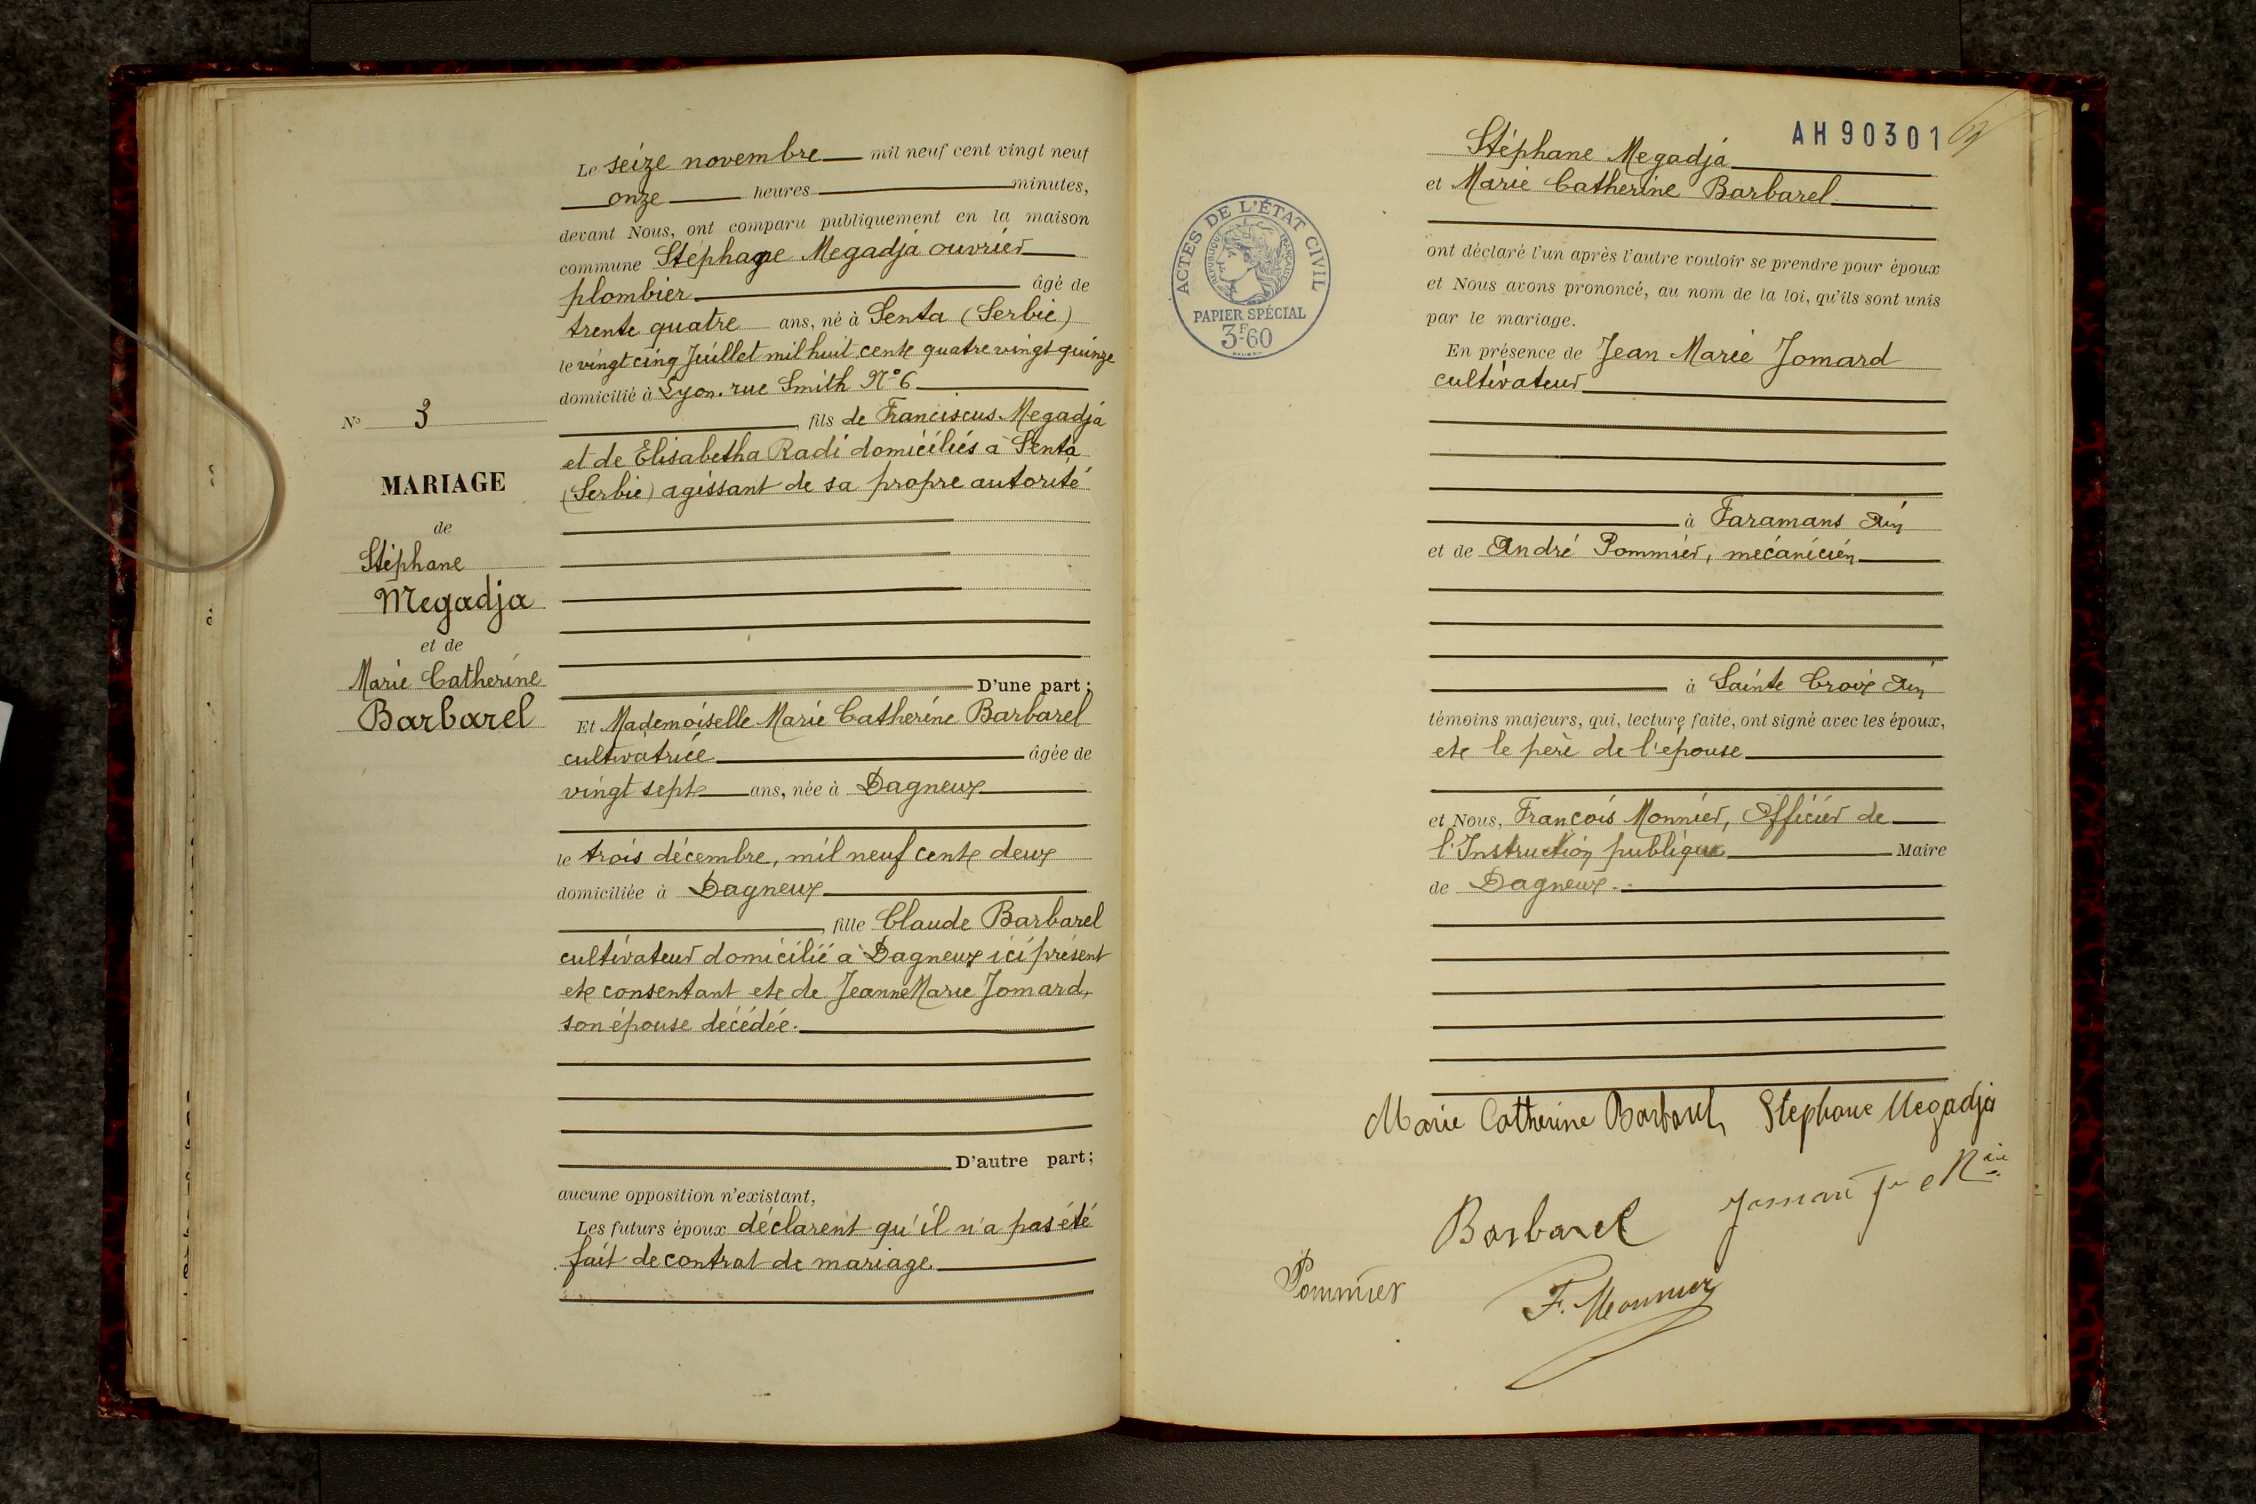 N° 3
MARIAGE
de
Stéphane
Megadja
et de
Marie Catherine
Barbarel
Le seize novembre mil neuf cent vingt neuf
onze heures minutes,
devant Nous, ont comparu publiquement en la maison
commune Stéphane Megadja ouvrier
plombier âgé de
trente quatre ans, né à Senta (Serbie)
le vingt cinq Juillet mil huit cent quatre vingt quinze
domicilié à Lyon. rue Smith N° 6
, fils de Franciscus Megadja
et de Elisabetha Radi domiciliés à Senta
(Serbie) agissant de sa propre autorité
D'une part ;
Et Mademoiselle Marie Catherine Barbarel
cultivatrice âgée de
vingt sept ans, née à Dagneux
le trois décembre, mil neuf cent deux
domiciliée à Dagneux
, fille Claude Barbarel
cultivateur domicilié à Dagneux ici présent
et consentant et de Jeanne Marie Jomard,
son épouse décédée.
D'autre part ;
aucune opposition n'existant,
Les futurs époux déclarent qu'il n'a pas été
fait de contrat de mariage.
AH 90301
Stéphane Megadja
et Marie Catherine Barbarel
ACTES DE L'ÉTAT CIVIL
RÉPUBLIQUE FRANÇAISE
PAPIER SPÉCIAL
3F60
ont déclaré l'un après l'autre vouloir se prendre pour époux
et Nous avons prononcé, au nom de la loi, qu'ils sont unis
par le mariage.
En présence de Jean Marie Jomard
cultivateur
à Faramans Ain
et de André Pommier, mécanicien
à Sainte Croix Ain
témoins majeurs, qui, lecture faite, ont signé avec les époux,
et le père de l'épouse
et Nous, François Monnier, Officier de
l'Instruction publique Maire
de Dagneux.
Marie Catherine Barbarel Stephane Megadja
Barbarel Jomard
Pommier F. Monnier